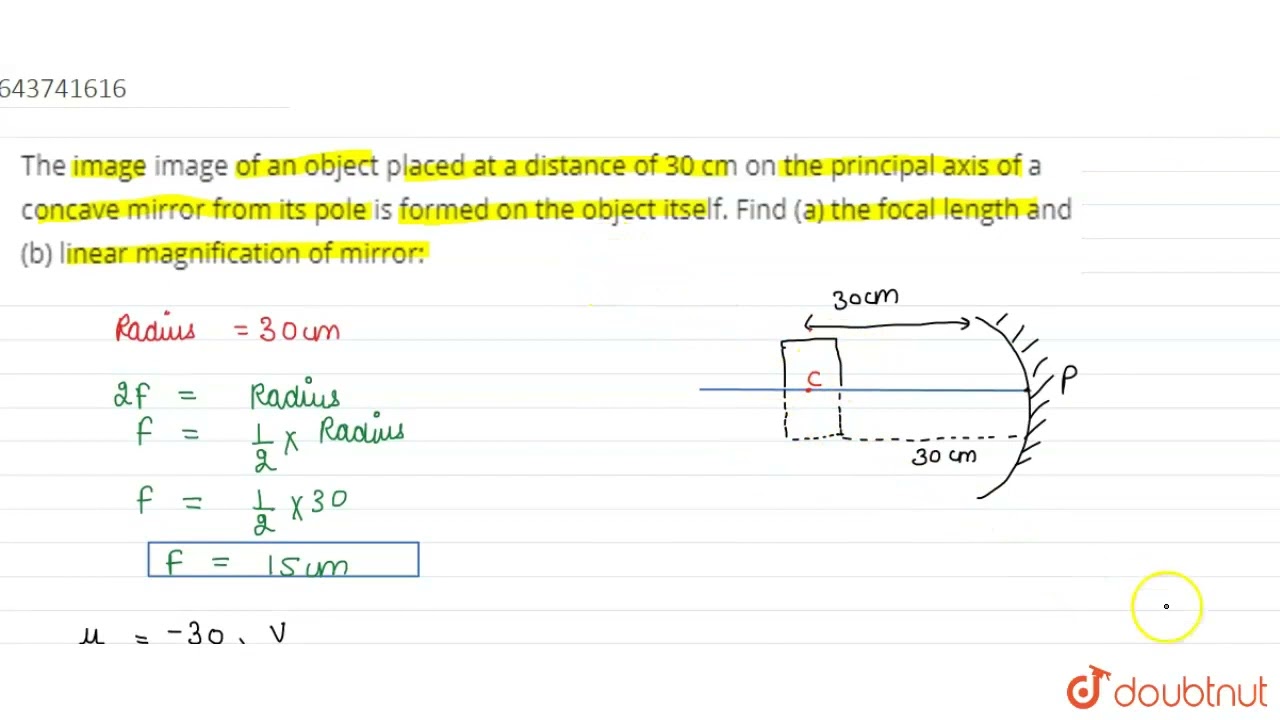 643741616
The image image of an object placed at a distance of 30 cm on the principal axis of a
concave mirror from its pole is formed on the object itself. Find (a) the focal length and
(b) linear magnification of mirror:
30cm
Radius = 30cm
C
P
2f = Radius
f = 1/2 x Radius
30 cm
f = 1/2 x 30
f = 15cm
u = -30, V
doubtnut